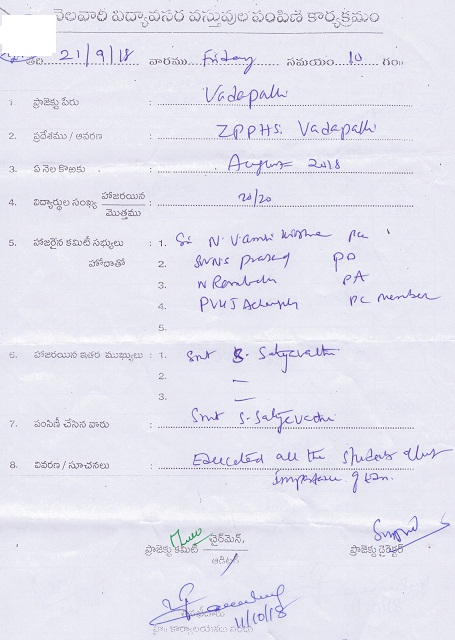 నెలవారీ విద్యావసర వస్తువుల పంపిణీ కార్యక్రమం
తేది. 21/9/18 వారము Friday సమయం 10 గం॥
1. ప్రాజెక్టు పేరు : Vadapalli
2. ప్రదేశము / ఆవరణ : ZPPHS. Vadapalli
3. ఏ నెల కొఱకు : August 2018
4. విద్యార్థుల సంఖ్య హాజరయిన / మొత్తము : 20/20
5. హాజరైన కమిటీ సభ్యులు : 1. Sri N. Vamsi Krishna PC
హోదాతో 2. SVNS Prasad PD
3. N Rambabu PA
4. PVHS PC member
5.
6. హాజరయిన ఇతర ముఖ్యులు : 1. Smt S. Satyavathi
2. —
3. —
7. పంపిణీ చేసిన వారు : Smt S. Satyavathi
8. వివరణ / సూచనలు : Educated all the students about
importance of
ప్రాజెక్టు కమిటీ ఛైర్మెన్, / ఆడిటర్ ప్రాజెక్టు డైరెక్టర్
11/10/18